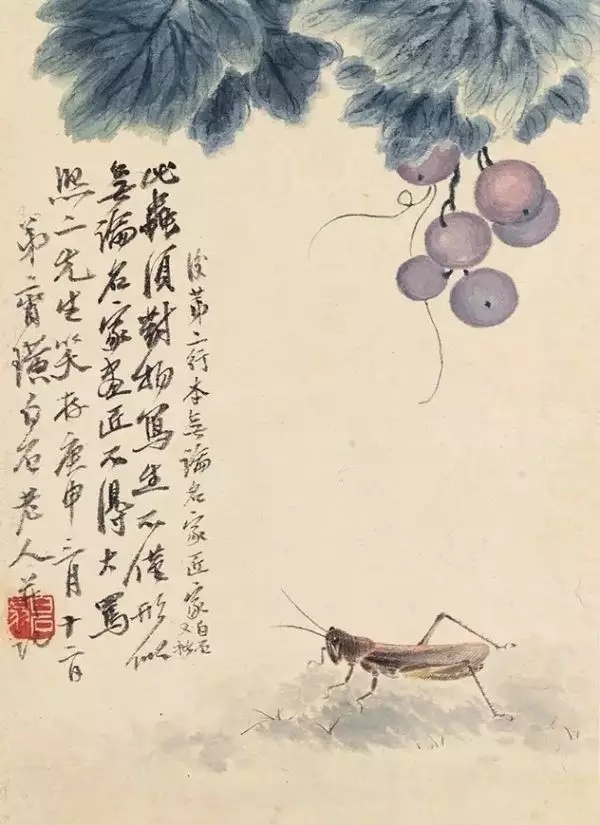 後第二行本無論名家匠家
白石又
此蟲須對物寫生不僅形似
無論名家畫匠不得大罵
熙二先生笑存庚申三月十二日
弟齊璜白石老人并記
白石翁